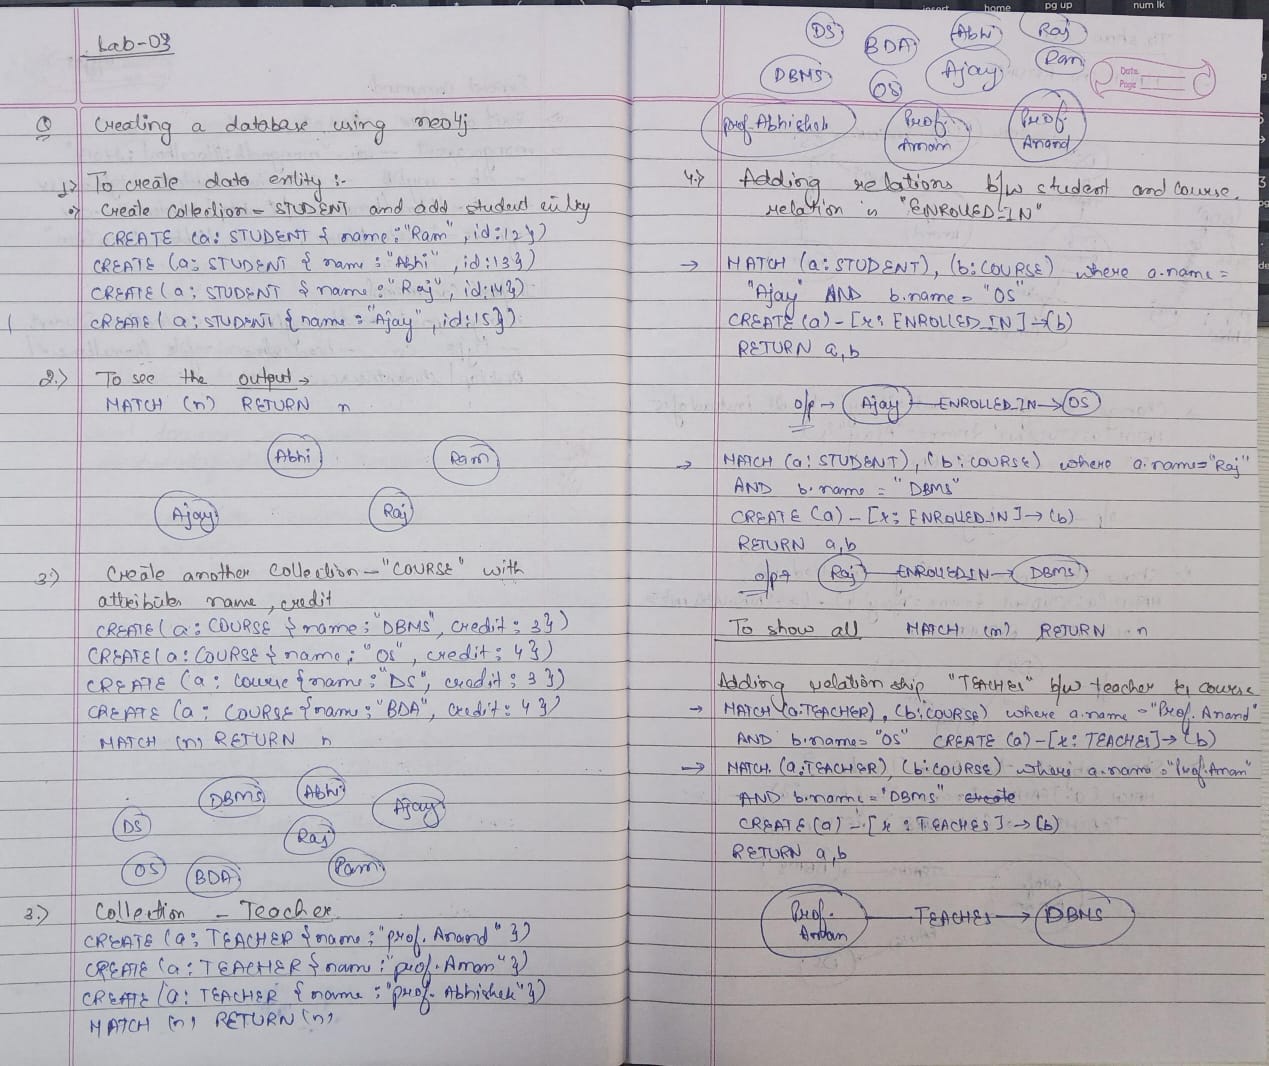 Lab-03
Q Creating a database using neo4j
1.> To create data entity :-
Create Collection - STUDENT and add student entry
CREATE (a: STUDENT { name: "Ram", id:12})
CREATE (a: STUDENT { name: "Abhi", id:13})
CREATE (a: STUDENT { name: "Raj", id:14})
CREATE (a: STUDENT { name: "Ajay", id:15})
2.> To see the output →
MATCH (n) RETURN n
Abhi Ram
Ajay Raj
3.) Create another Collection - "COURSE" with
attributes name, credit
CREATE (a: COURSE { name: "DBMS", credit: 3})
CREATE (a: COURSE { name: "OS", credit: 4})
CREATE (a: Course { name: "DS", credit: 3})
CREATE (a: COURSE { name: "BDA", credit: 4})
MATCH (n) RETURN n
DBMS Abhi Ajay
DS Raj
OS BDA Ram
3.) Collection - Teacher
CREATE (a: TEACHER { name: "prof. Anand" })
CREATE (a: TEACHER { name: "prof. Aman" })
CREATE (a: TEACHER { name: "prof. Abhishek" })
MATCH (n) RETURN (n)
Date
Page
DS BDA Abhi Raj
DBMS OS Ajay Ram
prof. Abhishek Prof. Amam Prof. Anand
4.> Adding relations b/w student and course.
relation is "ENROLLED_IN"
→ MATCH (a: STUDENT), (b: COURSE) where a.name =
"Ajay" AND b.name = "OS"
CREATE (a) - [r: ENROLLED_IN] → (b)
RETURN a,b
o/p → Ajay ENROLLED_IN → OS
→ MATCH (a: STUDENT), (b: COURSE) where a.name="Raj"
AND b.name = "DBMS"
CREATE (a) - [r: ENROLLED_IN] → (b)
RETURN a,b
o/p → Raj ENROLLEDIN → DBMS
To show all MATCH (n) RETURN n
Adding relation ship "TEACHES" b/w teacher & course
→ MATCH (a:TEACHER), (b:COURSE) where a.name = "Prof. Anand"
AND b.name= "OS" CREATE (a)-[r: TEACHES]→(b)
→ MATCH (a:TEACHER), (b:COURSE) where a.name = "Prof. Aman"
AND b.name = "DBMS" create
CREATE (a) - [r : TEACHES] → (b)
RETURN a,b
Prof. TEACHES → DBMS